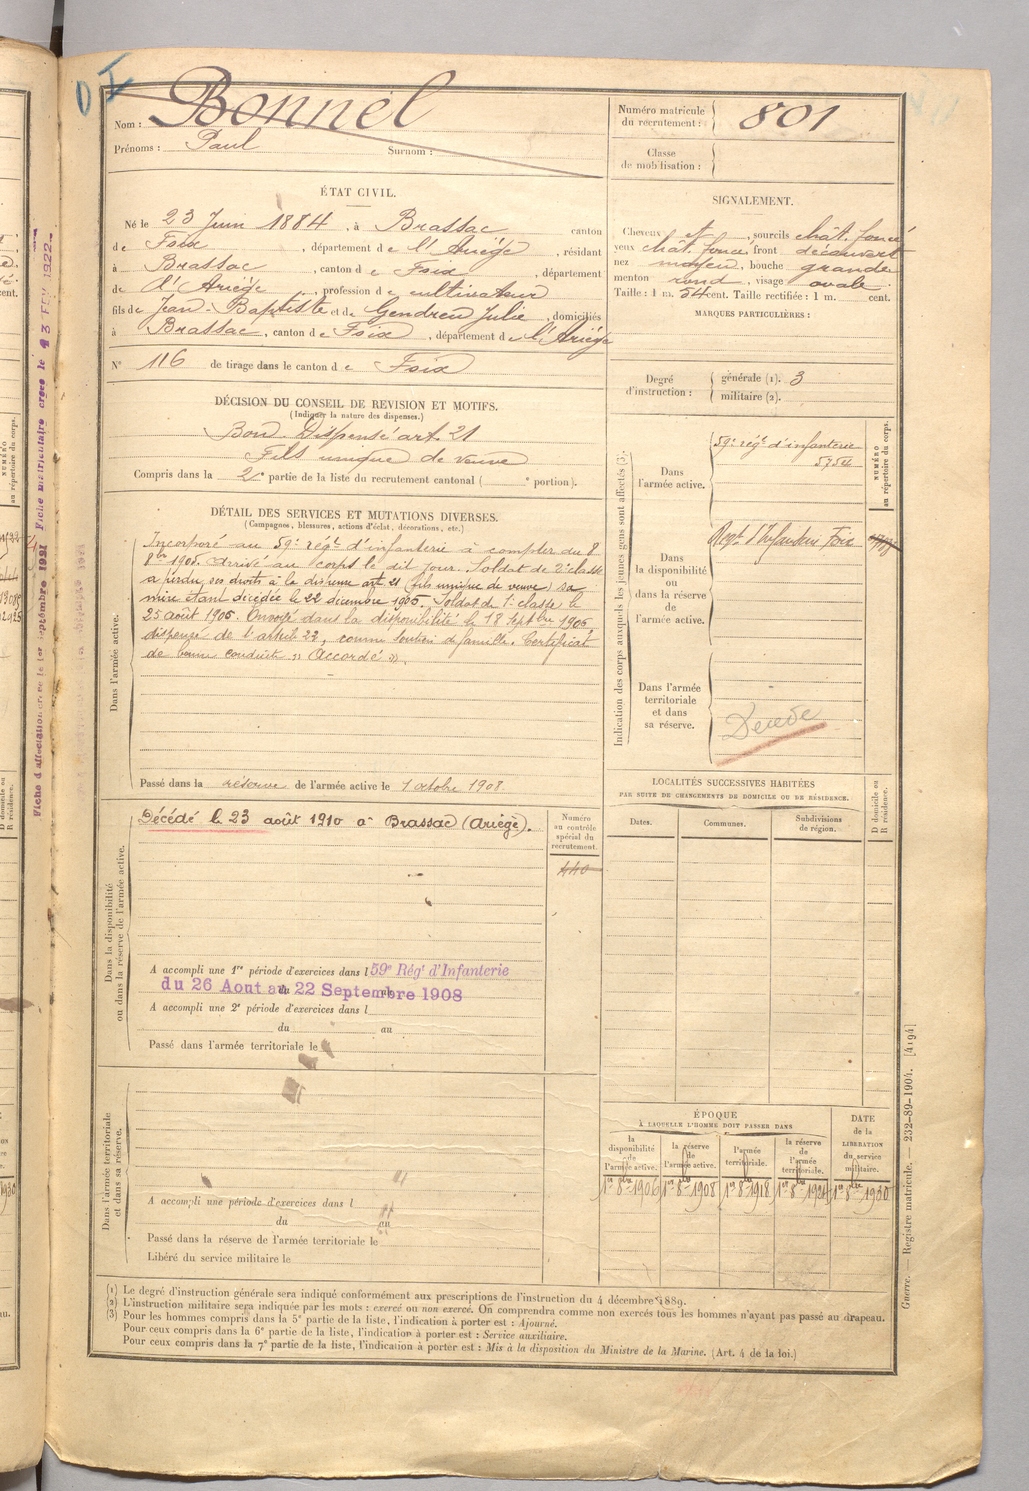 D I
Nom : Bonnel
Prénoms : Paul Surnom :
Numéro matricule du recrutement : 801
Classe de mobilisation :
ÉTAT CIVIL.
Né le 23 Juin 1884, à Brassac canton
de Foix, département de l'Ariège, résidant
à Brassac, canton de Foix, département
de d'Ariège, profession de cultivateur
fils de Jean-Baptiste et de Gendreu Julie, domiciliés
à Brassac, canton de Foix, département de l'Ariège
N° 116 de tirage dans le canton de Foix
SIGNALEMENT.
Cheveux et, sourcils chât. foncé
yeux chât. foncé, front découvert
nez moyen, bouche grande
menton rond, visage ovale
Taille : 1 m. 54 cent. Taille rectifiée : 1 m. cent.
MARQUES PARTICULIÈRES :
Degré d'instruction : générale (1). 3
militaire (2).
DÉCISION DU CONSEIL DE REVISION ET MOTIFS.
(Indiquer la nature des dispenses.)
Bon. Dispensé art. 21
Fils unique de veuve
Compris dans la 2e partie de la liste du recrutement cantonal ( e portion).
DÉTAIL DES SERVICES ET MUTATIONS DIVERSES.
(Campagnes, blessures, actions d'éclat, décorations, etc.)
Dans l'armée active.
Incorporé au 59e régt d'infanterie à compter du 8
8bre 1905. Arrivé au corps le dit jour. Soldat de 2e classe
a perdu ses droits à la dispense art. 21 (fils unique de veuve) sa
mère étant décédée le 22 décembre 1905. Soldat de 1e classe le
25 août 1906. Envoyé dans la disponibilité le 18 septbre 1906
dispensé de l'article 22, comme soutien de famille. Certificat
de bonne conduite « Accordé ».
Passé dans la réserve de l'armée active le 1 octobre 1908.
Indication des corps auxquels les jeunes gens sont affectés (3).
NUMÉRO au répertoire du corps.
Dans l'armée active.
59e régt d'infanterie
5754
Dans la disponibilité ou dans la réserve de l'armée active.
Regt d'Infanterie Foix
Dans l'armée territoriale et dans sa réserve.
Décédé
Dans la disponibilité ou dans la réserve de l'armée active.
Décédé le 23 août 1910 à Brassac (Ariège).
Numéro au contrôle spécial du recrutement.
440
A accompli une 1re période d'exercices dans l 59e Régt d'Infanterie
du 26 Aout au 22 Septembre 1908
A accompli une 2e période d'exercices dans l
du au
Passé dans l'armée territoriale le
LOCALITÉS SUCCESSIVES HABITÉES
PAR SUITE DE CHANGEMENTS DE DOMICILE OU DE RÉSIDENCE.
Dates. Communes. Subdivisions de région. D domicile ou R résidence.
Dans l'armée territoriale et dans sa réserve.
A accompli une période d'exercices dans l
du au
Passé dans la réserve de l'armée territoriale le
Libéré du service militaire le
ÉPOQUE
À LAQUELLE L'HOMME DOIT PASSER DANS
la disponibilité de l'armée active. la réserve de l'armée active. l'armée territoriale. la réserve de l'armée territoriale. DATE de la LIBÉRATION du service militaire.
1er 8bre 1906 1er 8bre 1908 1er 8bre 1918 1er 8bre 1924 1er 8bre 1930
(1) Le degré d'instruction générale sera indiqué conformément aux prescriptions de l'instruction du 4 décembre 1889.
(2) L'instruction militaire sera indiquée par les mots : exercé ou non exercé. On comprendra comme non exercés tous les hommes n'ayant pas passé au drapeau.
(3) Pour les hommes compris dans la 5e partie de la liste, l'indication à porter est : Ajourné.
Pour ceux compris dans la 6e partie de la liste, l'indication à porter est : Service auxiliaire.
Pour ceux compris dans la 7e partie de la liste, l'indication à porter est : Mis à la disposition du Ministre de la Marine. (Art. 4 de la loi.)
Guerre. — Registre matricule. — 232-89-1904. [4194]